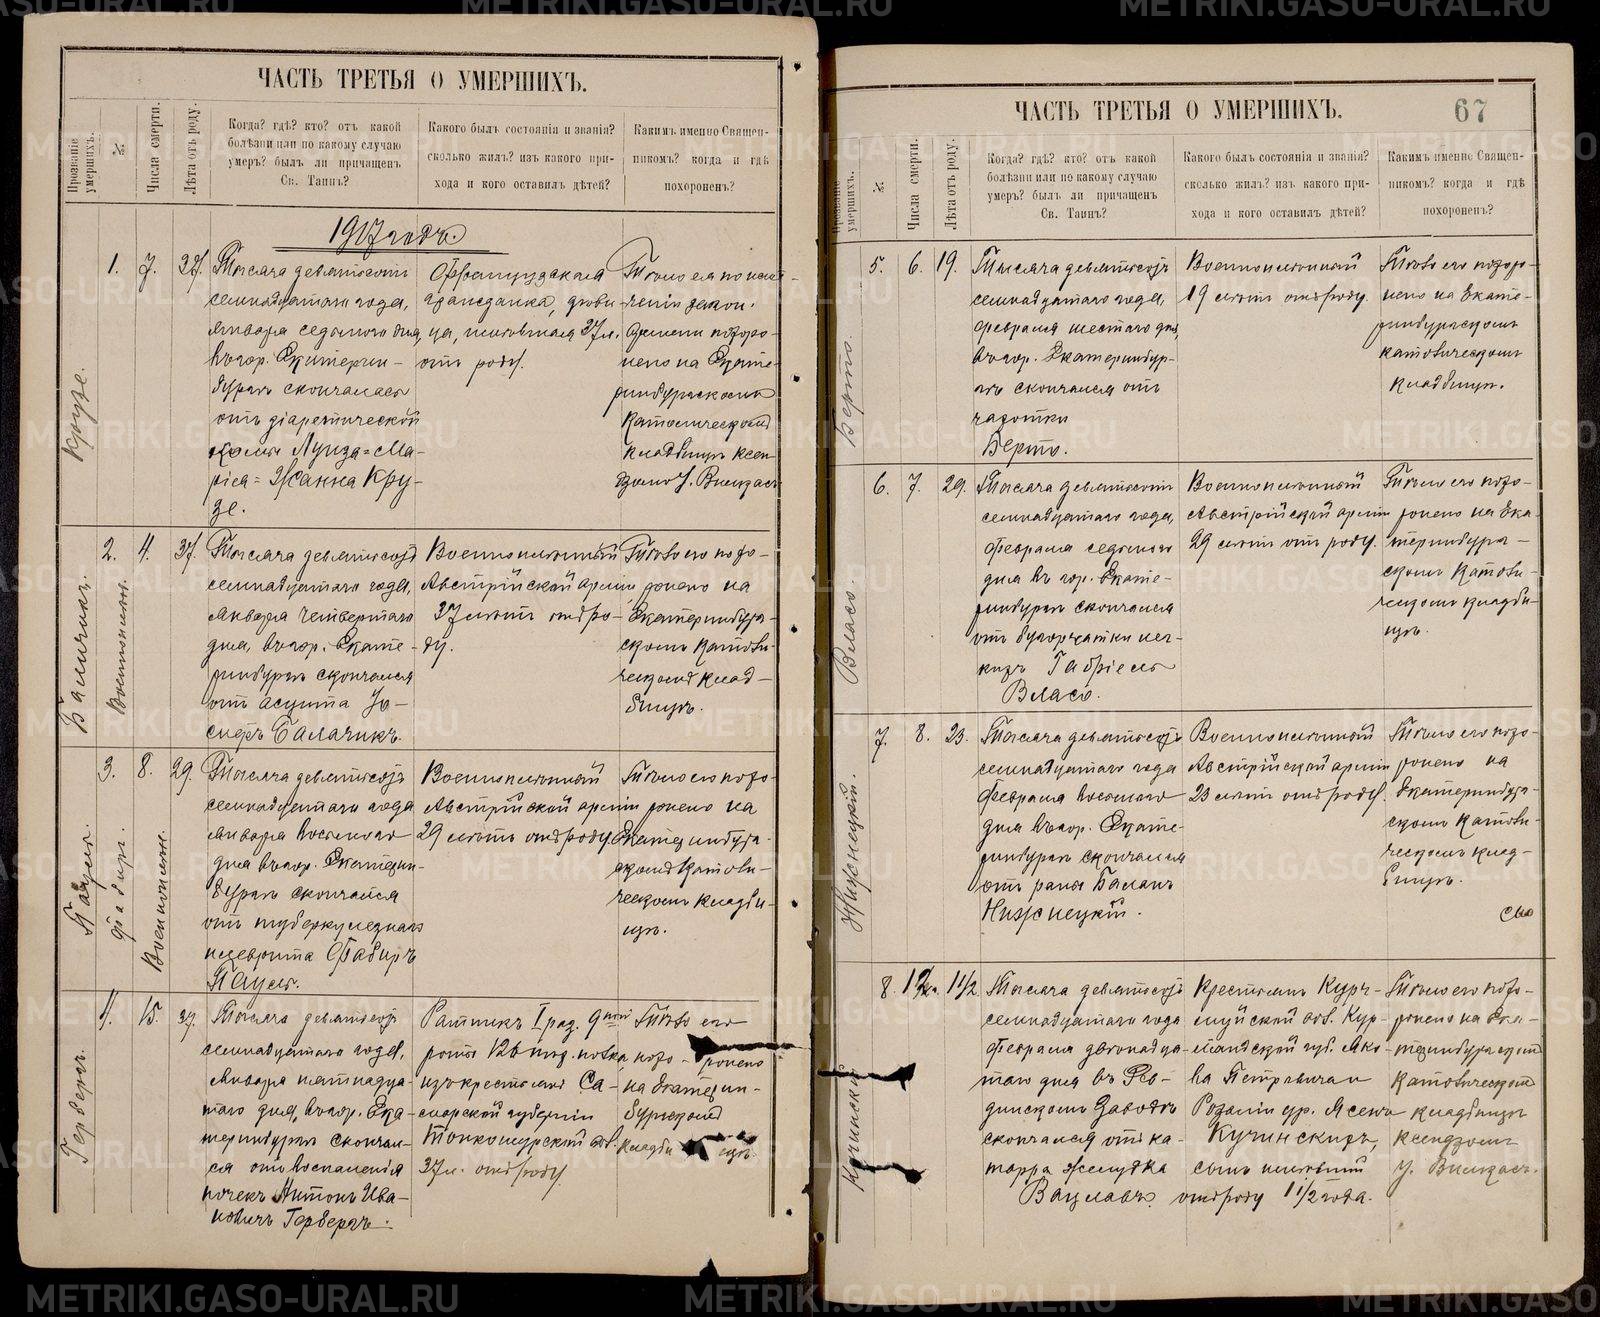 ЧАСТЬ ТРЕТЬЯ О УМЕРШИХЪ.
Прозваніе умершихъ.
№
Числа смерти.
Лѣта отъ роду.
Когда? гдѣ? кто? отъ какой
болѣзни или по какому случаю
умеръ? былъ ли причащенъ
Св. Таинъ?
Какого былъ состоянія и званія?
сколько жилъ? изъ какого при-
хода и кого оставилъ дѣтей?
Какимъ именно Священ-
никомъ? когда и гдѣ
похороненъ?
1917 годъ.
Крузе.
1.
7.
37.
Тысяча девятьсотъ
семнадцатаго года,
Января седьмого дня
въ гор. Екатерин-
бургѣ скончалась
отъ діаретической
комы Луиза-Ма-
рія-Жанна Кру-
зе.
Французская
гражданка, дѣви-
ца, жившая 37 л.
отъ роду.
Тѣло ея по
погребено на Екате-
ринбургскомъ
католическомъ
кладбищѣ ксен-
дзомъ
Баличикъ.
Военноплѣн.
2.
4.
37.
Тысяча девятьсотъ
семнадцатаго года,
Января четвертаго
дня, въ гор. Екате-
ринбургѣ скончался
отъ асцита Іо-
сифъ Баличикъ.
Военноплѣнный
Австрійской арміи
37 лѣтъ отъ ро-
ду.
Тѣло его похо-
ронено на
Екатеринбург-
скомъ католи-
ческомъ клад-
бищѣ.
Пауль.
Фабиръ.
Военноплѣн.
3.
8.
29.
Тысяча девятьсотъ
семнадцатаго года
Января восьмого
дня въ гор. Екатерин-
бургѣ скончался
отъ туберкулезнаго
плеврита Фабиръ
Пауль.
Военноплѣнный
Австрійской арміи
29 лѣтъ отъ роду.
Тѣло его похо-
ронено на
Екатеринбург-
скомъ католи-
ческомъ кладби-
щѣ.
Гербергъ.
4.
15.
37.
Тысяча девятьсотъ
семнадцатаго года,
Января пятнадца-
таго дня, въ гор. Ека-
теринбургѣ скончал-
ся отъ воспаленія
почекъ Антонъ Ива-
новичъ Гербергъ.
Ратникъ I раз. 9ной
роты 126 пѣх. полка,
изъ крестьянъ Са-
марской губерніи
37 л. отъ роду.
Тѣло его
похо-ронено
на Екатерин-
бургскомъ
кладбищѣ.
67
ЧАСТЬ ТРЕТЬЯ О УМЕРШИХЪ.
Прозваніе умершихъ.
№
Числа смерти.
Лѣта отъ роду.
Когда? гдѣ? кто? отъ какой
болѣзни или по какому случаю
умеръ? былъ ли причащенъ
Св. Таинъ?
Какого былъ состоянія и званія?
сколько жилъ? изъ какого при-
хода и кого оставилъ дѣтей?
Какимъ именно Священ-
никомъ? когда и гдѣ
похороненъ?
Берто.
5.
6.
19.
Тысяча девятьсотъ
семнадцатаго года,
Февраля шестаго дня,
въ гор. Екатеринбур-
гѣ скончался отъ
чахотки
Берто.
Военноплѣнный
19 лѣтъ отъ роду.
Тѣло его похоро-
нено на Екате-
ринбургскомъ
католическомъ
кладбищѣ.
Власо.
6.
7.
29.
Тысяча девятьсотъ
семнадцатаго года,
Февраля седьмого
дня въ гор. Екате-
ринбургѣ скончался
отъ бугорчатки лег-
кихъ Габріель
Власо.
Военноплѣнный
Австрійской арміи
29 лѣтъ отъ роду.
Тѣло его похо-
ронено на Ека-
теринбург-
скомъ католи-
ческомъ кладби-
щѣ.
Нижнецкій.
7.
8.
23.
Тысяча девятьсотъ
семнадцатаго года
Февраля восьмого
дня въ гор. Екате-
ринбургѣ скончался
отъ раны Балан
Нижнецкій.
Военноплѣнный
Австрійской арміи
23 лѣтъ отъ роду.
Тѣло его похо-
ронено на
Екатеринбург-
скомъ католи-
ческомъ клад-
бищѣ.
Кучинскій
8.
12
1 1/2
Тысяча девятьсотъ
семнадцатаго года
Февраля двѣнадца-
таго дня въ Рев-
динскомъ Заводѣ
скончался отъ ка-
тарра желудка
Вацлавъ.
Крестьянъ
Кур-
ляндской губ. Яко-
ва Петровича и
Розаліи ур. Ясень
Кучинскихъ,
сынъ жившій
отъ роду 1 1/2 года.
Тѣло его похо-
ронено на Ека-
теринбургскомъ
католическомъ
кладбищѣ
ксендзомъ
METRIKI.GASO-URAL.RU